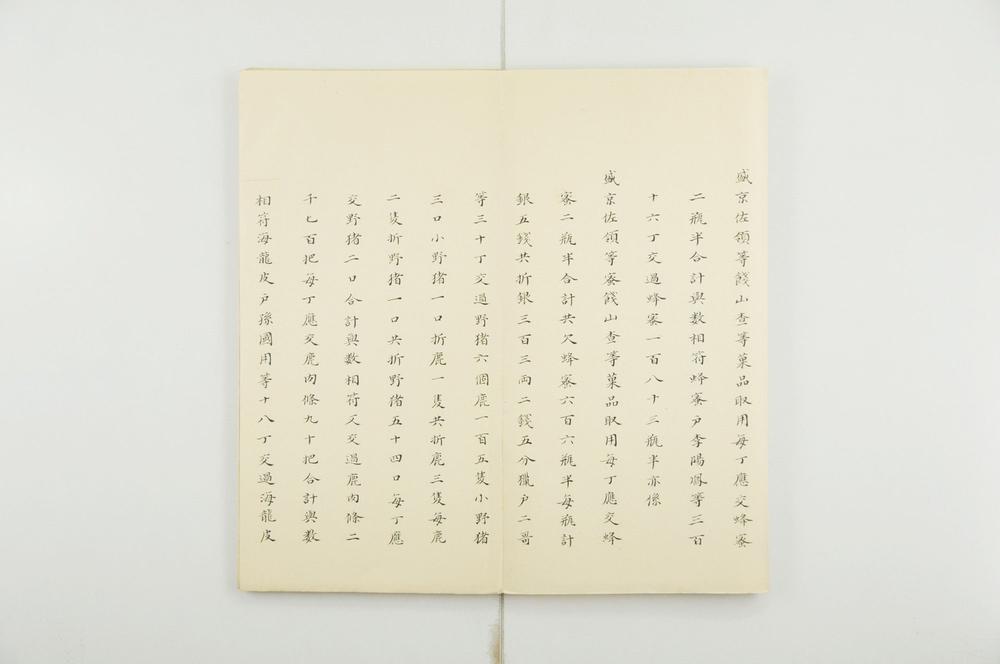 盛京佐領等餞山查等菓品取用每丁應交蜂蜜
二瓶半合計與数相符蜂蜜户李陽鳳等三百
十六丁交過蜂蜜一百八十三瓶半亦係
盛京佐領等蜜餞山查等菓品取用每丁應交蜂
蜜二瓶半合計共欠蜂蜜六百六瓶半每瓶計
銀五錢共折銀三百三兩二錢五分獵户二哥
等三十丁交過野猪六個鹿一百五隻小野猪
三口小野猪一口折鹿一隻共折鹿三隻每鹿
二隻折野猪一口共折野猪五十四口每丁應
交野猪二口合計與数相符又交過鹿肉條二
千七百把每丁應交鹿肉條九十把合計與数
相符海龍皮户孫國用等十八丁交過海龍皮